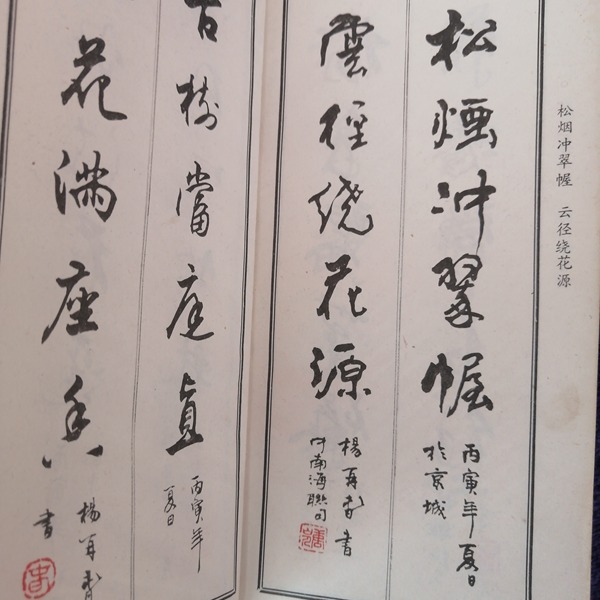 松烟冲翠幄 云径绕花源
松煙冲翠幄
丙寅年夏日
於京城
雲徑绕花源
楊再春書
中南海聯句
樹當庭直
丙寅年
夏日
花滿座香
楊再春
書